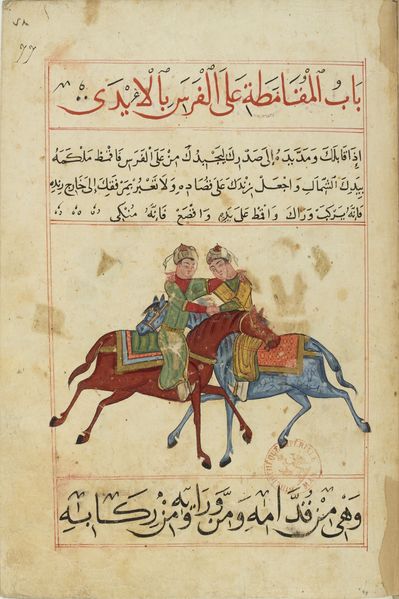 باب المقامطة على الفرس بالايدى
اذا قابلك ومد يده الى صدرك ليجبدك من على الفرس فاقمط ملكمه
بيدك الشمال واجعل زندك على قصامه ولا تعبر بمرفقك الى خارج زنده
فانه يركب وراك واقظ على يده واقضع فانه منتكى
وهى من قدامه ومن ورائه ومن ركابه